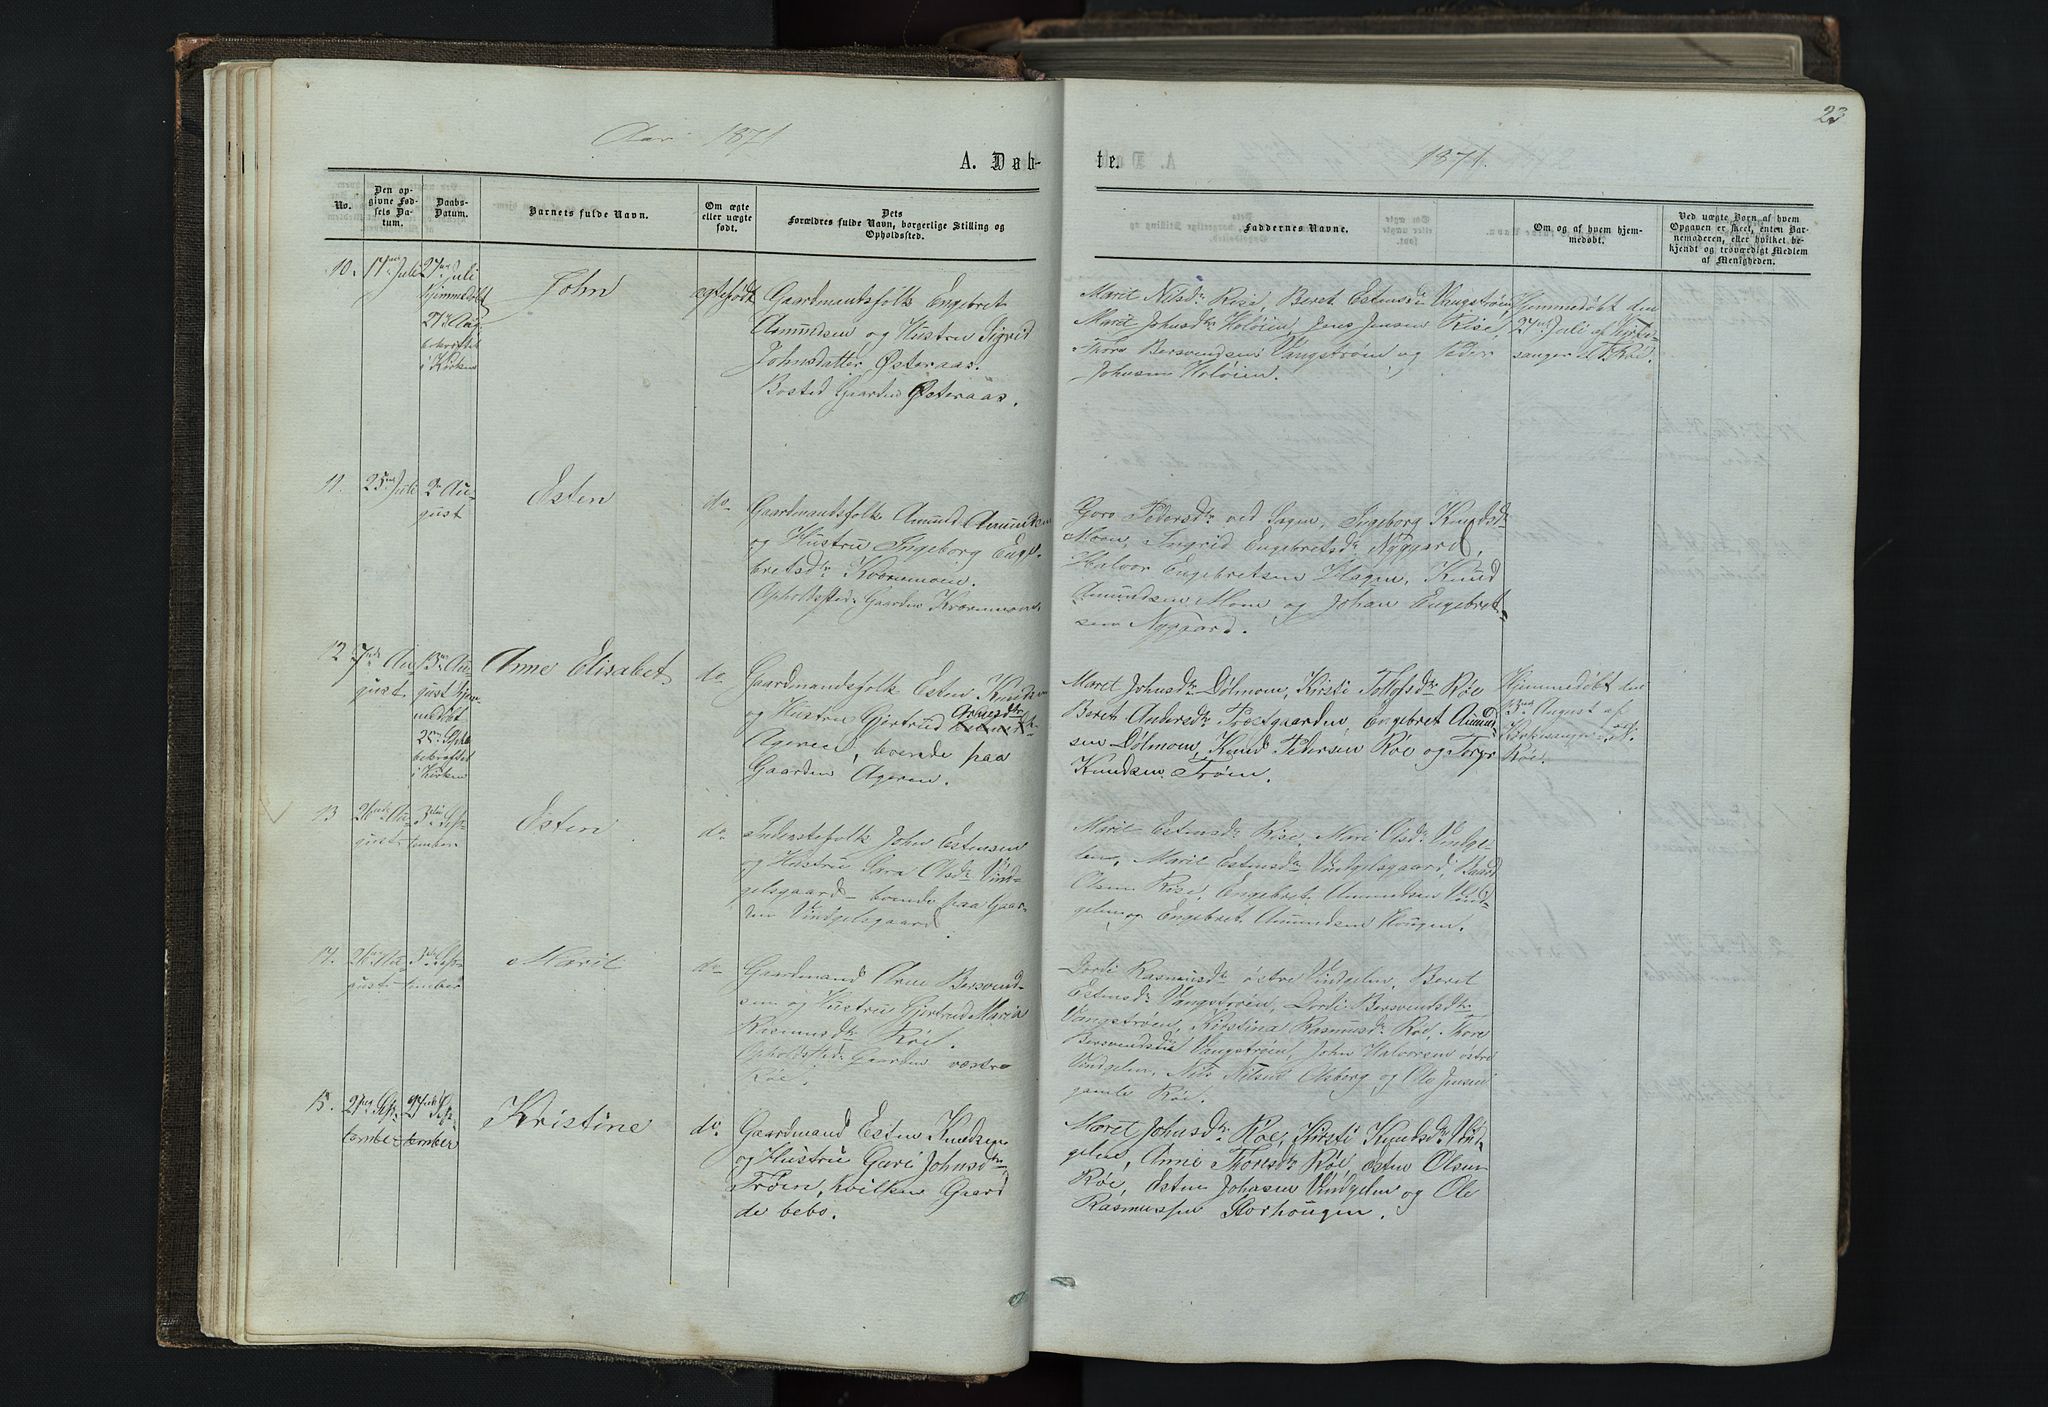 23
Aar 1871
1871.
A. Døb-
te.
No.
Den op-
givne Fød-
sels Da-
tum.
Daabs-
Datum.
Barnets fulde Navn.
Om ægte
eller uægte
født.
Dets
Forældres fulde Navn, borgerlige Stilling og
Opholdssted.
Faddernes Navne.
Om og af hvem hjem-
medøbt.
Ved uægte Børn af hvem
Opgaven er skeet, enten Bar-
nemoderen, eller hvilket be-
kjendt og troværdigt Medlem
af Menigheden.
10.
17de Juli
27de Juli
hjemmedøbt
27de Aug
bekræftet
i Kirken
John
ægtefødt
Gaardmandsfolk Engebret
Amundsen og Hustru Sigrid
Johnsdatter Østeraas.
Bosted Gaarden Østeraas.
Marit Nilsdr Rise, Beret Estensdr Vangstrøen,
Marit Johnsdr Holøien, Jens Jensen Rise,
Thore Bersvendsen Vangstrøen og Peder
Johnsen Holøien.
Hjemmedøbt den
27de Juli af Kirke-
sanger N. Røe.
11.
25de Juli
2den Au-
gust
Esten
do
Gaardmandsfolk Amund Amundsen
og Hustru Ingeborg Enge-
bretsdr Kværnmoen.
Opholdssted: Gaarden Kværnmoen
Goro Pedersdr ved Sagen, Ingeborg Knudsdr
Moen, Ingrid Engebretsdr Nygaard,
Halvor Engebretsen Hagen, Knud
Amundsen Moen og Johan Engebret-
sen Nygaard.
12
7de Au-
gust.
13de Au-
gust hjem-
medøbt
bekræftet
i Kirken
Anne Elisabet
do
Gaardmandsfolk Esten Knudsen
og Hustru Gjertrud Arnesdtr
Ageren, boende paa
Gaarden Ageren.
Maret Johnsdr Dølmoen, Kirsti Tollofsdr Røe
Beret Andersdr Præstgaarden, Engebret Amund-
sen Dølmoen, Knud Pedersen Røe og
Knudsen Trøen.
Hjemmedøbt den
13de August af
Kirkesanger N.
Røe.
13
26de Au-
gust
3die Sep-
tember
Esten
do
Inderstefolk John Estensen
og Hustru Sara Olsdr Vind-
gelsgaard boende paa Gaar-
den Vindgelsgaard.
Marit Estensdr Rise, Mari Olsdr Vindge-
len, Marit Estensdr Vindgelsgaard, Baard
Olsen Rise, Engebret Amundsen Vind-
gelen og Engebret Amundsen Hougen.
14.
26de Au-
gust
3die Sep-
tember
Marit
do
Gaardmand Arne Bersvend-
sen og Hustru Gjertrud Maria
Rasmusdr Røe.
Opholdssted Gaarden vestre
Røe.
Dordi Rasmusdr østre Vindgelen, Beret
Estensdr Vangstrøen, Dordi Bersvendsdr
Vangstrøen, Kirstina Rasmusdr Røe, Thore
Bersvendsen Vangstrøen, John Halvorsen østre
Vindgelen, Nils Nilsen Alsberg og Ole Jensen
gamle Røe.
15.
21de Sep-
tember
Sep-
tember
Kristine
do
Gaardmand Esten Knudsen
og Hustru Guri Johnsdtr
Trøen, hvilken Gaard
de bebo.
Maret Johnsdr Røe, Kirsti Knudsdr Vind-
gelen, Anne Thoresdr Røe, Esten Olsen
Røe, Esten Johnsen Vindgelen og Ole
Rasmussen Storhougen.